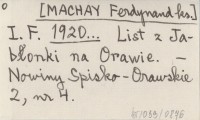 [MACHAY Ferdynand ks.]
I. F. 1920... List z Ja-
błonki na Orawie. –
Nowiny Spisko-Orawskie
2, nr 4.